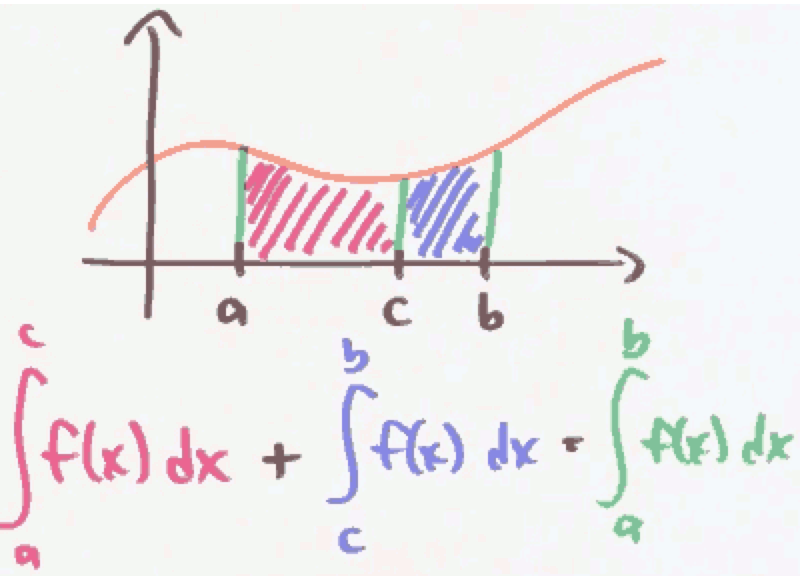 a c b
∫ₐᶜ f(x) dx + ∫꜀ᵇ f(x) dx = ∫ₐᵇ f(x) dx